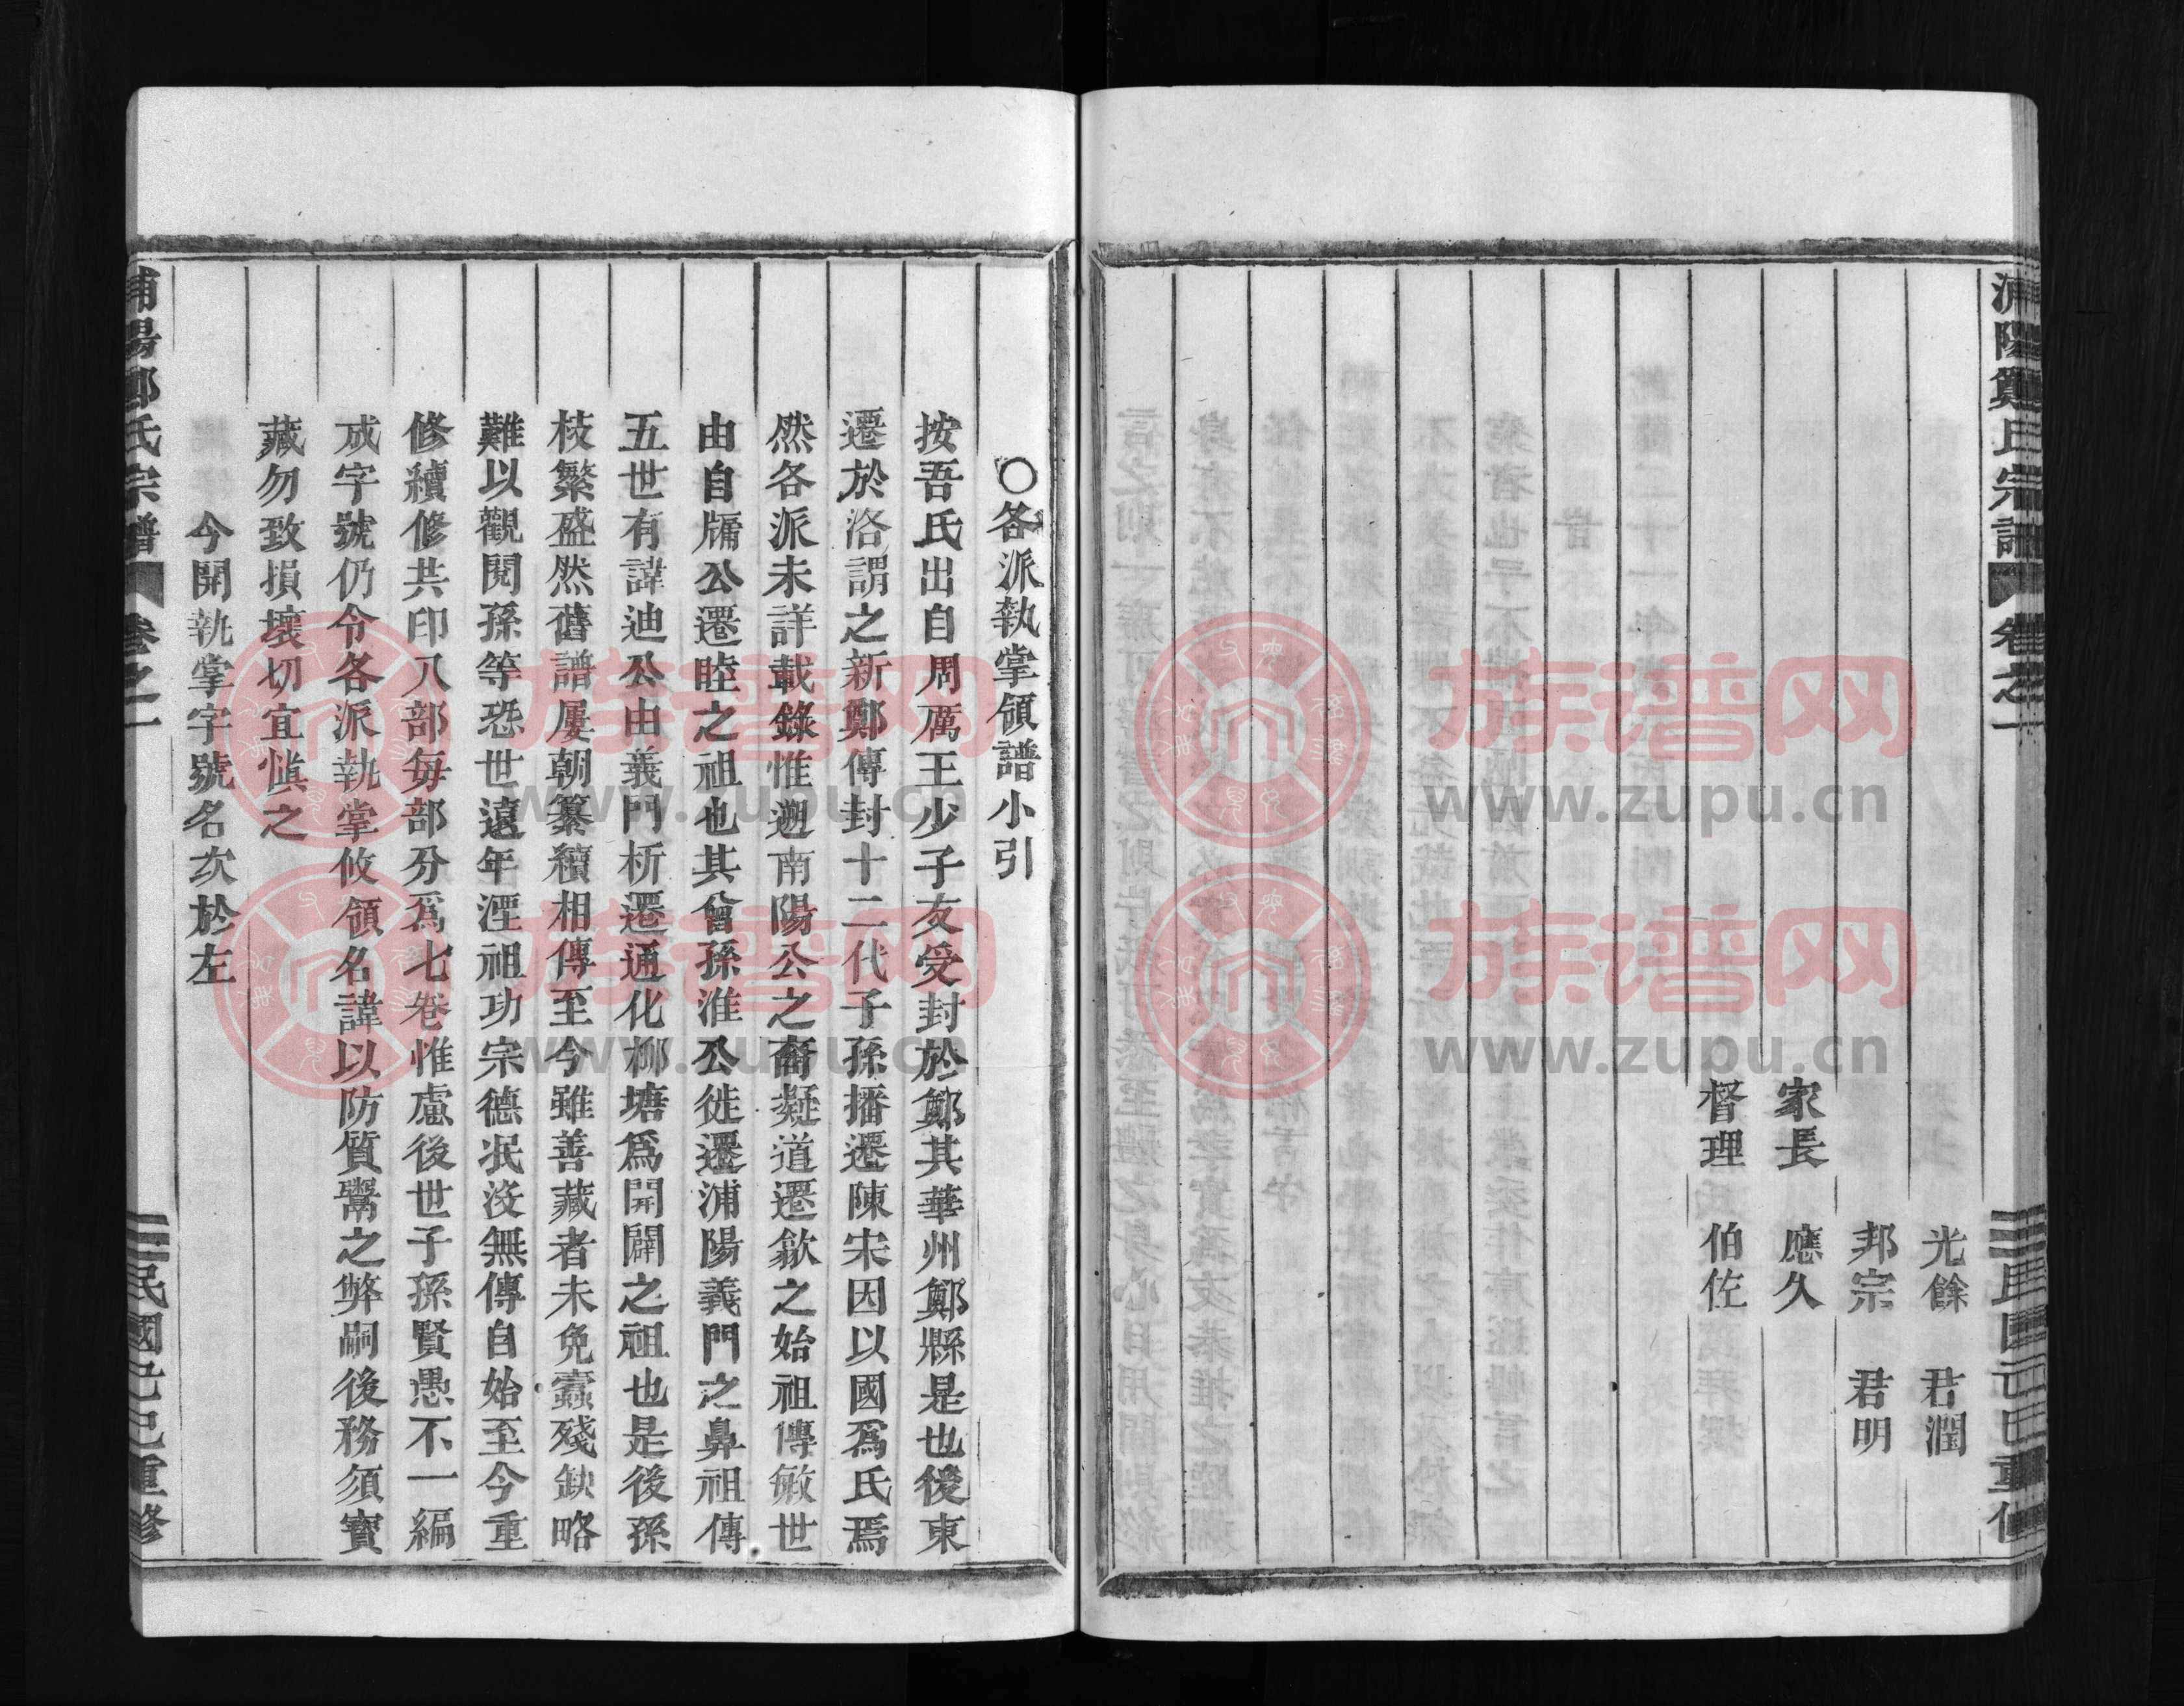 浦陽鄭氏宗譜 卷之一 民國己巳重修
光餘 君潤
邦宗 君明
家長 應久
督理 伯佐
○各派執掌領譜小引
按吾氏出自周厲王少子友受封於鄭其華州鄭縣是也後東
遷於洛謂之新鄭傳封十二代子孫播遷陳宋因以國爲氏焉
然各派未詳載錄惟遡南陽公之裔凝道遷歙之始祖傳敏世
由自牖公遷睦之祖也其曾孫淮公徙遷浦陽義門之鼻祖傳
五世有諱迪公由義門析遷通化柳塘爲開闢之祖也是後孫
枝繁盛然舊譜屢朝纂續相傳至今雖善藏者未免蠹殘缺略
難以觀閱孫等恐世遠年湮祖功宗德泯沒無傳自始至今重
修續修共印八部每部分爲七卷惟慮後世子孫賢愚不一編
成字號仍令各派執掌攸領名諱以防質鬻之弊嗣後務須寶
藏勿致損壞切宜愼之
今開執掌字號名次於左
浦陽鄭氏宗譜 卷之一 民國己巳重修
族谱网
www.zupu.cn
族谱网
www.zupu.cn
族谱网
www.zupu.cn
族谱网
www.zupu.cn